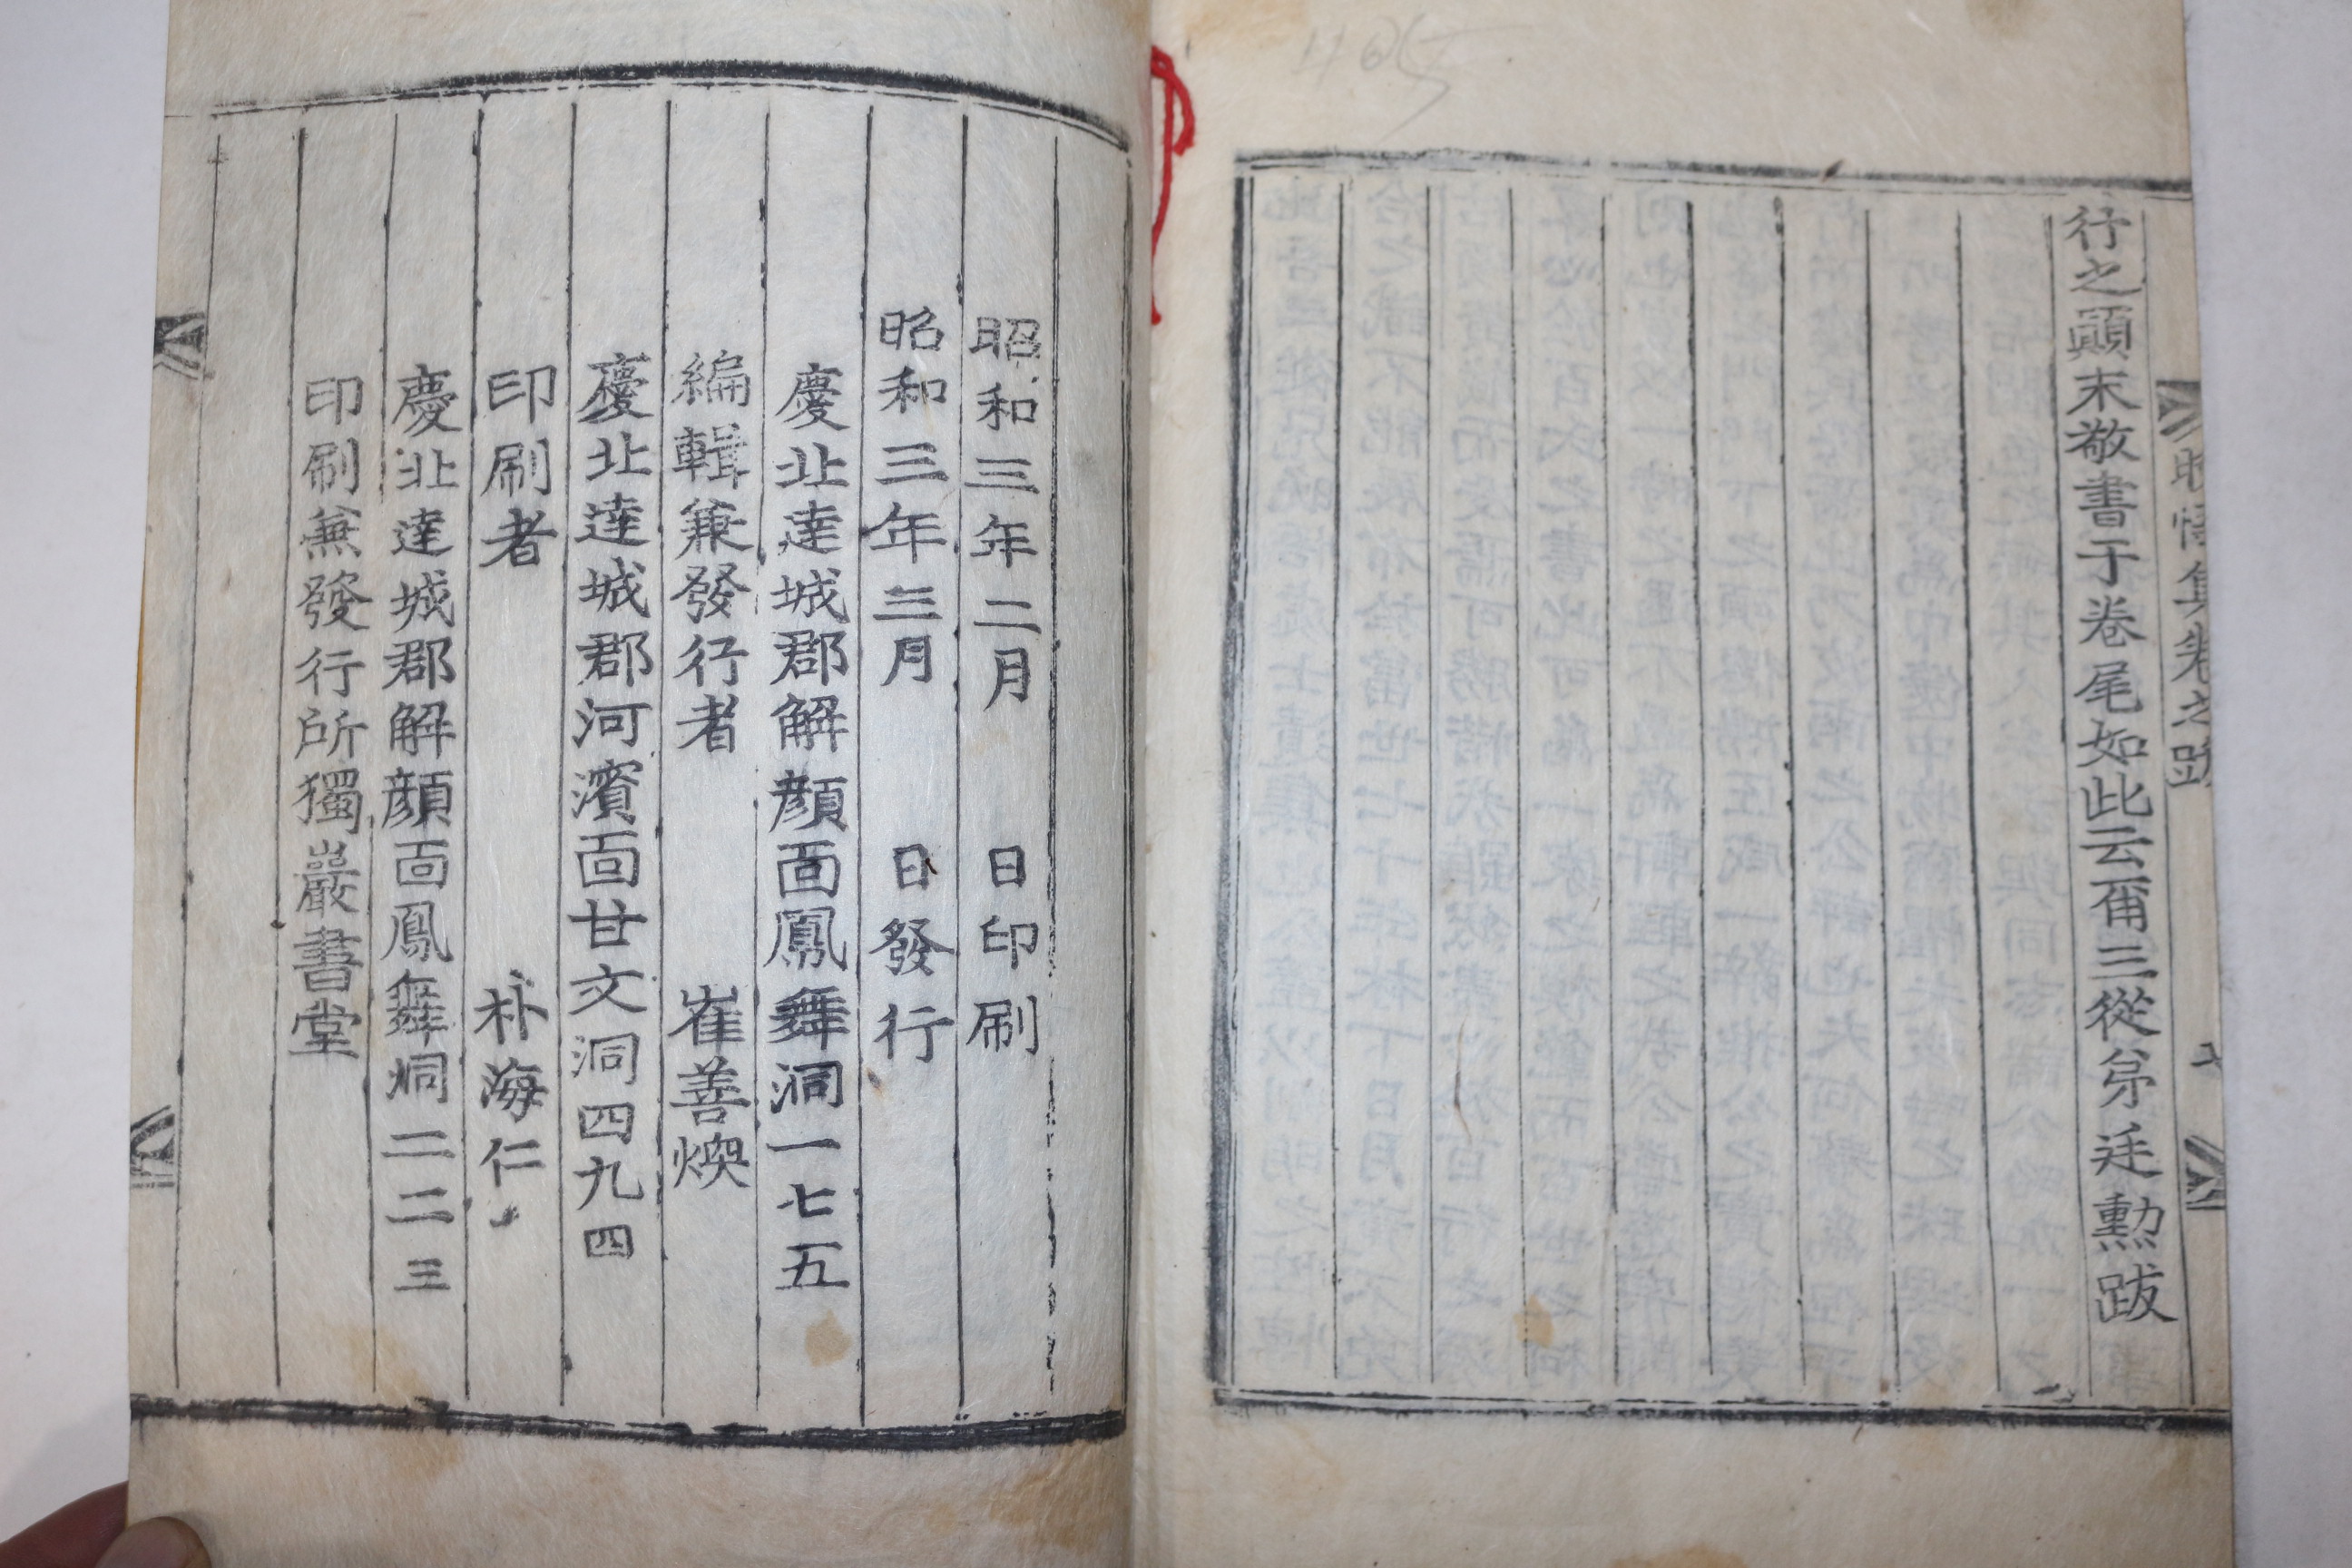 行之顚末敬書于卷尾如此云爾三從弟廷勲跋
集卷之跋
昭和三年二月 日印刷
昭和三年三月 日發行
慶北達城郡解顔面鳳舞洞一七五
編輯兼發行者 崔善煥
慶北達城郡河濱面甘文洞四九四
印刷者 朴海仁
慶北達城郡解顔面鳳舞洞二二三
印刷兼發行所獨巖書堂